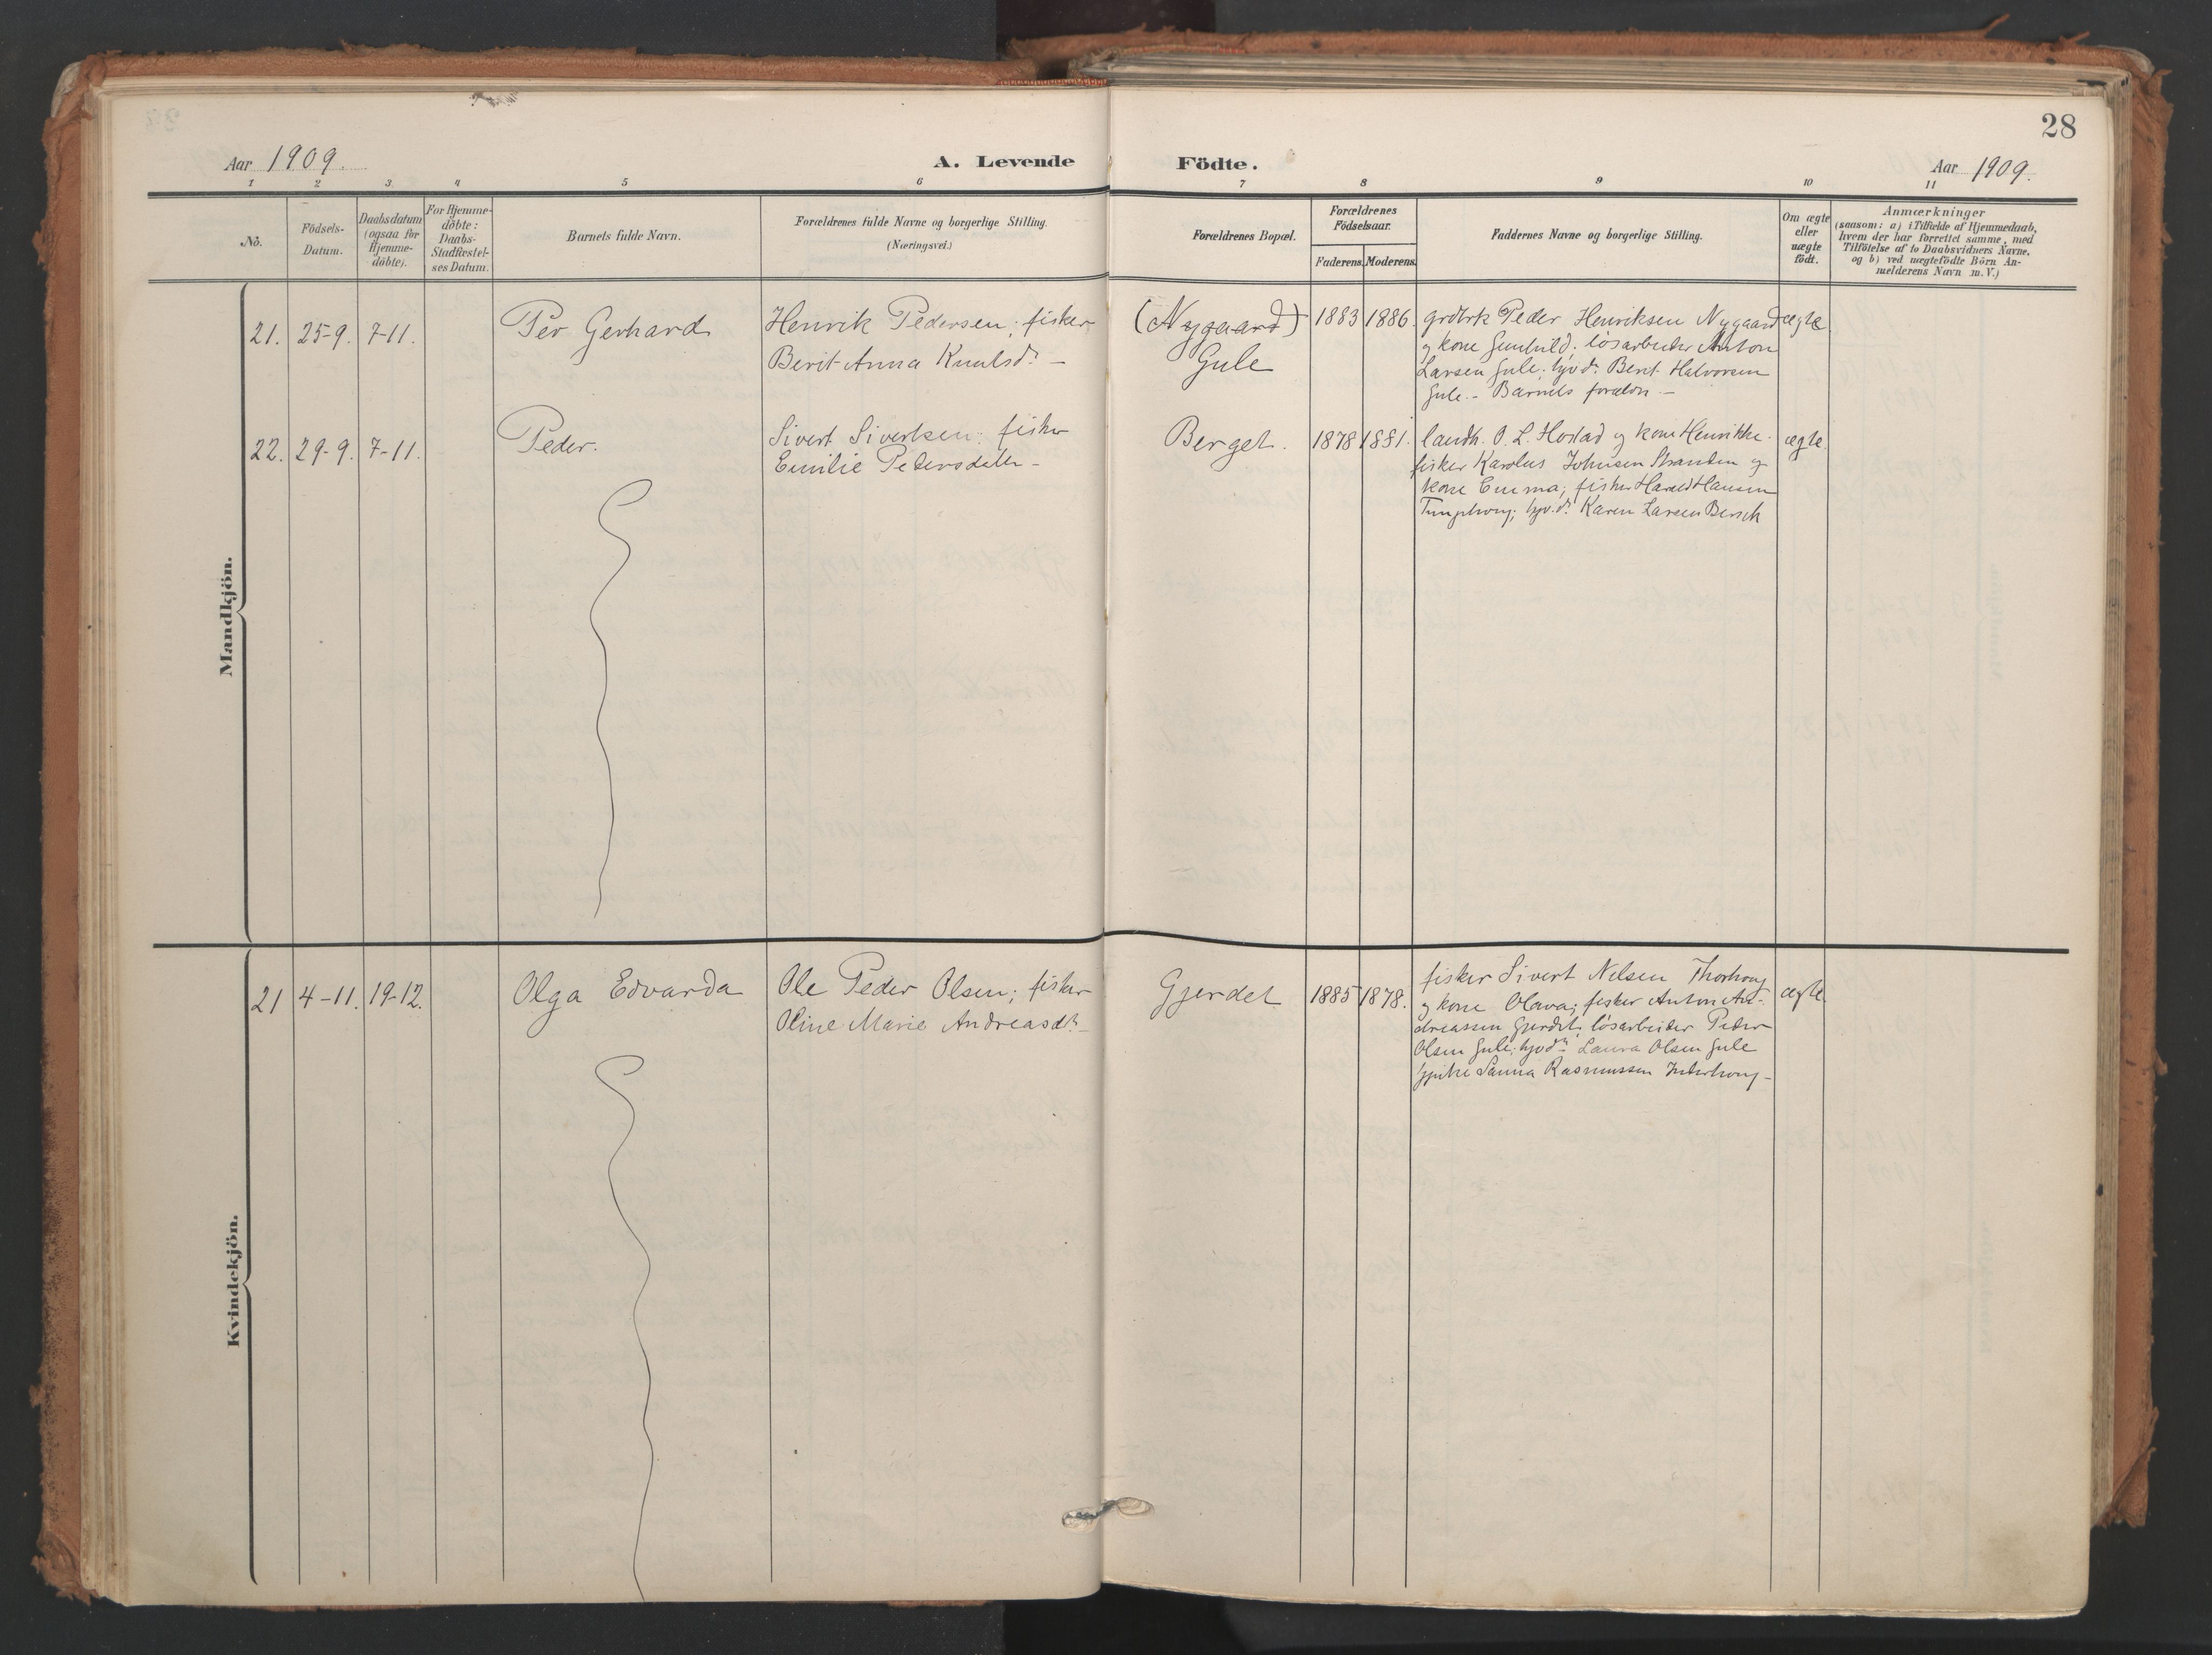 28
Aar 1909.
A. Levende Födte.
Aar 1909.
1 2 3 4 5 6 7 8 9 10 11
No.
Födsels-
Datum.
Daabsdatum
(ogsaa for
Hjemme-
döbte).
For Hjemme-
döbte:
Daabs-
Stadfæstel-
ses Datum.
Barnets fulde Navn.
Forældrenes fulde Navne og borgerlige Stilling.
(Næringsvei.)
Forældrenes Bopæl.
Forældrenes
Födselsaar.
Faderens. Moderens.
Faddernes Navne og borgerlige Stilling.
Om ægte
eller
uægte
födt.
Anmærkninger
(saasom: a) i Tilfælde af Hjemmedaab,
hvem der har forrettet samme, med
Tilföielse af to Daabsvidners Navne,
og b) ved uægtefödte Börn An-
melderens Navn m. V.)
Mandkjön.
21. 25-9. 7-11. Per Gerhard
Henrik Pedersen; fisker,
Berit Anna Knutsdr. –
(Nygaard)
Gule
1883 1886.
grdbrk Peder Henriksen Nygaard
og kone Gunhild; løsarbeider Anton
Larsen Gule; Berit Halvorsen
Gule. - Barnets –
ægte
22. 29-9. 7-11. Peder.
Sivert Sivertsen; fisker
Emilie Pedersdatter –
Berget.
1878 1881.
landh. O. L. Hostad og kone Henrikke.
fisker Karolus Johnsen Stranden og
kone Emma; fisker Harald Hansen
Karen Larsen
ægte.
Kvindekjön.
21 4-11. 19-12. Olga Edvarda
Ole Peder Olsen; fisker
Oline Marie Andreasdtr. –
Gjerdet
1885 1878.
fisker Sivert Nelsen
og kone Olava; fisker Anton An-
dreassen Gjerdet; løsarbeider Peder
Olsen Gule; Laura Olsen Gule
Sanna Rasmussen
ægte.